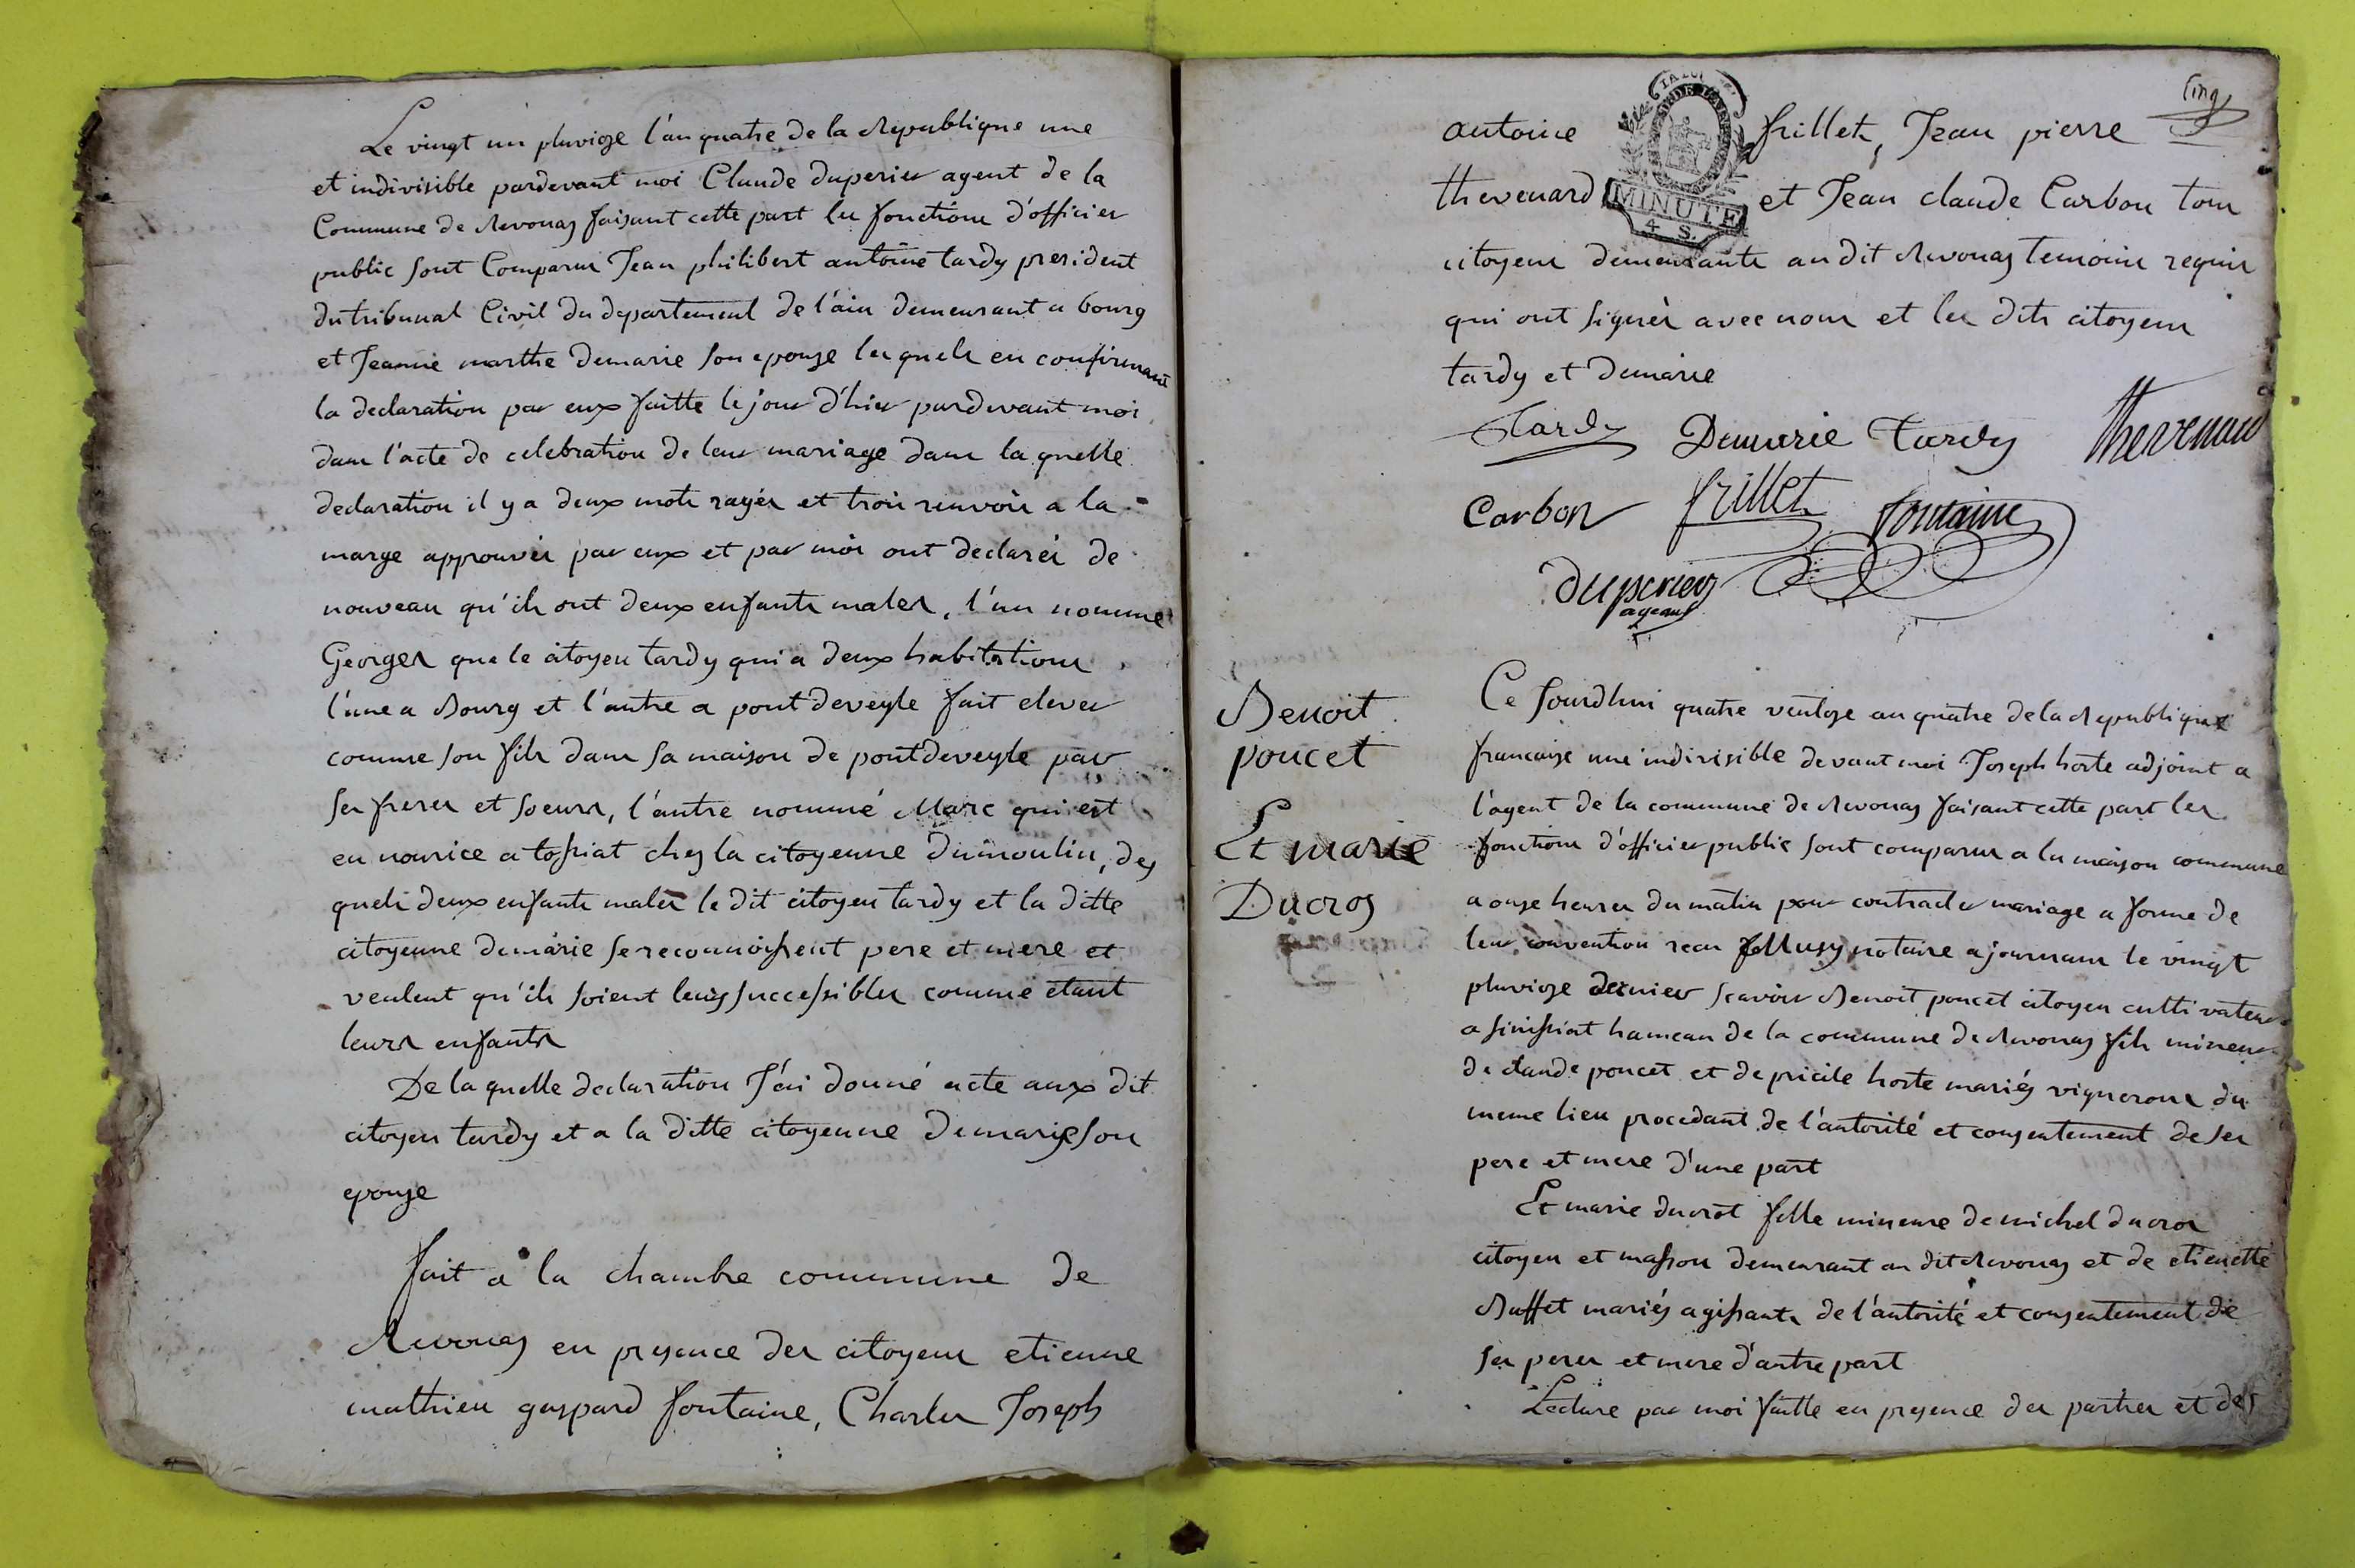 Le vingt un pluviose l'an quatre de la Republique une
et indivisible pardevant moi Claude duperier agent de la
Commune de Revonas faisant cette part les fonctions d'officier
public sont Comparus Jean philibert antoine tardy president
du tribunal Civil du departement de l'ain demeurant a bourg
et Jeanne marthe demarie son epouse lesquels en confirmant
la declaration par eux faitte le jour d'hier pardevant moi
dans l'acte de celebration de leur mariage dans la quelle
declaration il y a deux mots rayés et trois renvois a la
marge approuvés par eux et par moi ont declarés de
nouveau qu'ils ont deux enfants males, l'un nommé
Georges que le citoyen tardy qui a deux habitations
l'une a Bourg et l'autre a pontdeveyle fait elever
comme son fils dans sa maison de pontdeveyle par
ses freres et soeurs, l'autre nommé Marc qui est
en nourice a tossiat chez la citoyenne dumoulin, des
quels deux enfants males le dit citoyen tardy et la ditte
citoyenne demarie se reconnoissent pere et mere et
veulent qu'ils soient leurs successibles comme étant
leurs enfants
De la quelle declaration J'ai donné acte aux dit
citoyen tardy et a la ditte citoyenne demarie son
epouse
fait a la chambre commune de
Revonas en presence des citoyens etienne
mathieu gaspard fontaine, Charles Joseph
cinq
antoine frillet, Jean pierre
LA LOI
thevenard et Jean claude Carbon tous
MINUTE
4 S.
citoyens demeurants au dit Revonas temoins requis
qui ont signés avec nous et les dits citoyens
tardy et demarie
Tardy Demarie Tardy thevenard
Carbon frillet fontaine
duperier
agent
Benoit
poucet
Et marie
Ducros
Ce Jourdhui quatre ventose an quatre de la Republique
francaise une indivisible devant moi Joseph hoste adjoint a
l'agent de la commune de Revonas faisant cette part les
fonctions d'officier public sont comparus a la maison commune
a onze heures du matin pour contracter mariage a forme de
leur convention recu notaire a journans le vingt
pluviose dernier scavoir Benoit poucet citoyen cultivateur
a sinissiat hameau de la commune de Revonas fils mineur
de claude poucet et de hoste mariés vignerons du
meme lieu procedant de l'autorité et consentement de ses
pere et mere d'une part
Et marie ducrot fille mineure de michel ducros
citoyen et masson demeurant au dit Revonas et de etienette
Buffet mariés agissante de l'autorité et consentement de
ses peres et mere d'autre part
Lecture par moi faitte en presence des parties et des